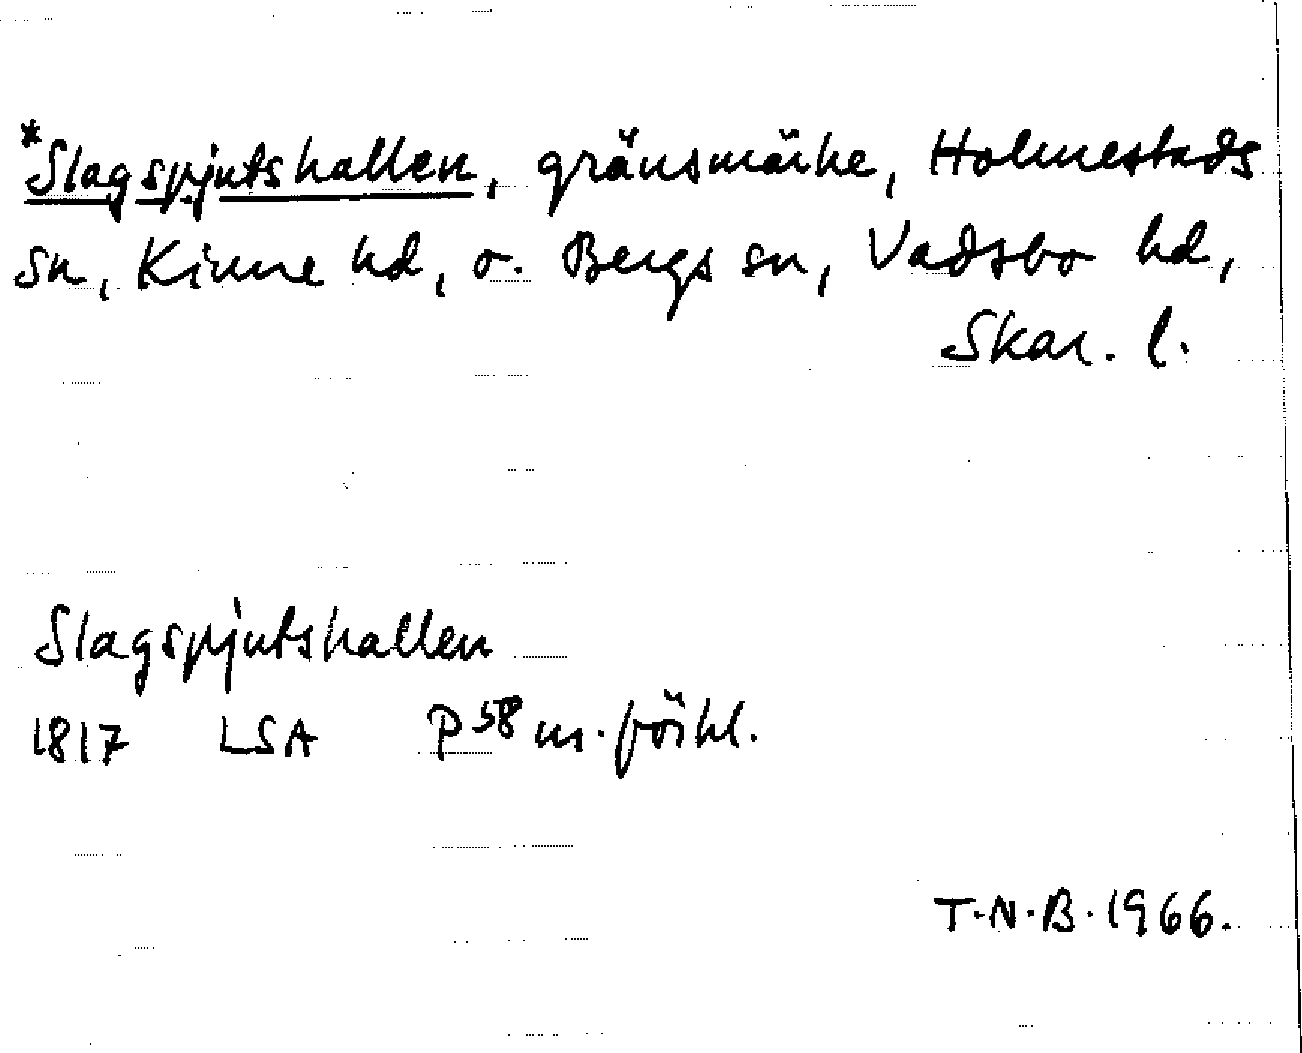 *Slagspjutshallen, gränsmärke, Holmestads
sn, Kinne hd, o. Bergs sn, Vadsbo hd,
Skar. l.
Slagspjutshallen
1817 LSA P 58 m. förkl.
T.N.B. 1966.